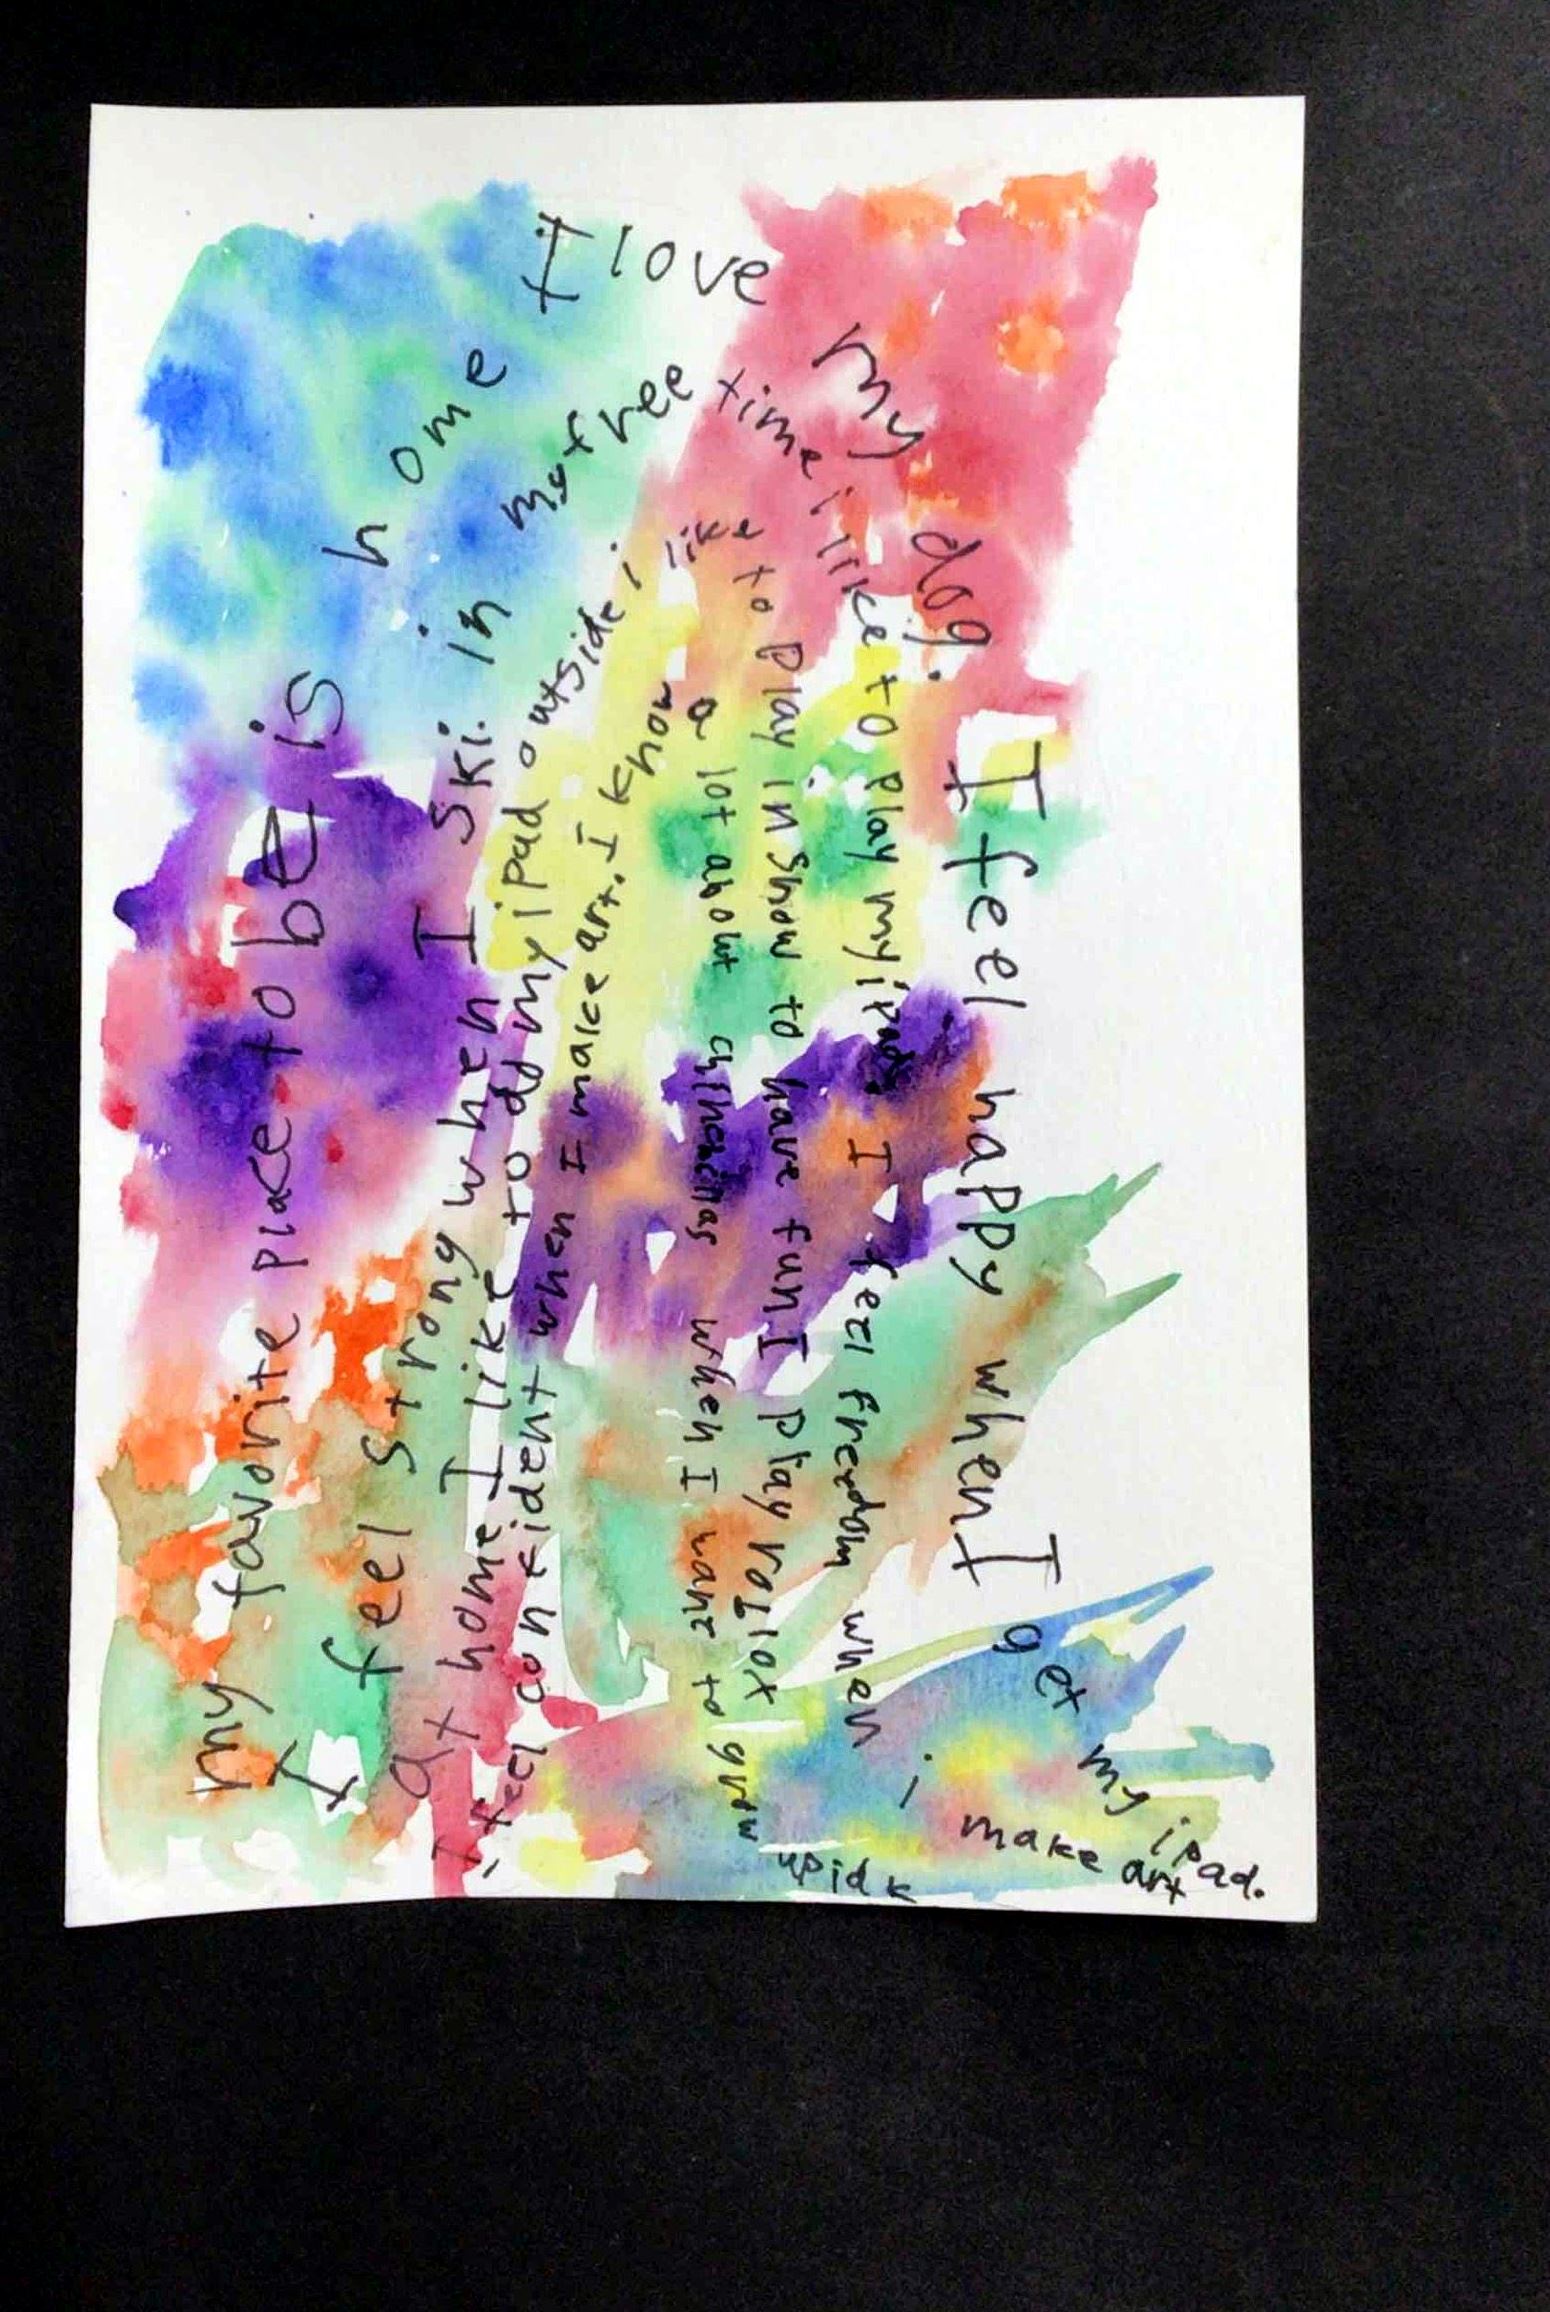 my favorite place to be is home I love my dog. I feel happy when I get my ipad.
I feel strong when I ski. in my free time i like to play my ipad. I feel freedom when i make art
at home I like to do my ipad outside i like to play in snow to have fun I play roblox
I feel confident when I make art. I know a lot about when I want to grow up idk